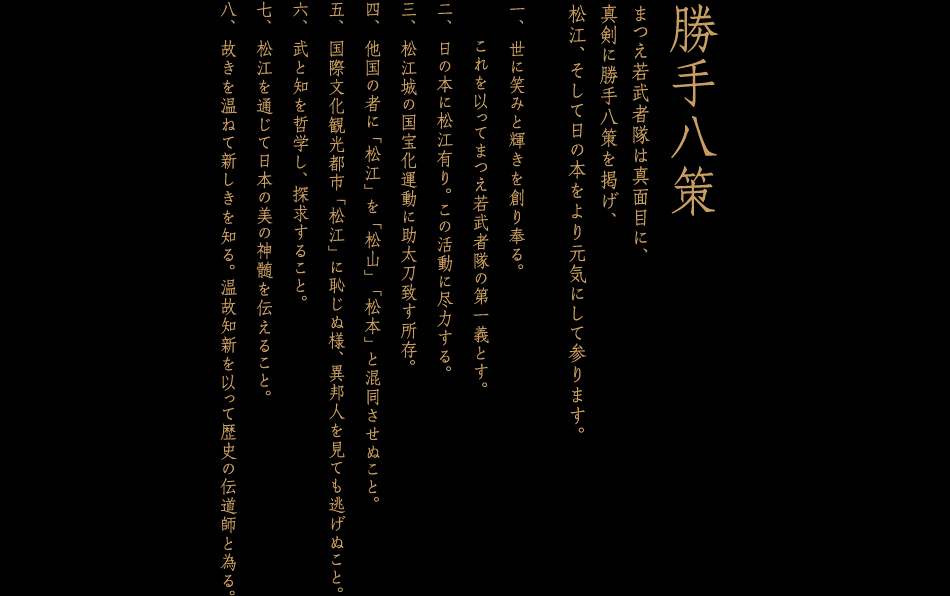 勝手八策
まつえ若武者隊は真面目に、
真剣に勝手八策を掲げ、
松江、そして日の本をより元気にして参ります。
一、世に笑みと輝きを創り奉る。
これを以ってまつえ若武者隊の第一義とす。
二、日の本に松江有り。この活動に尽力する。
三、松江城の国宝化運動に助太刀致す所存。
四、他国の者に「松江」を「松山」「松本」と混同させぬこと。
五、国際文化観光都市「松江」に恥じぬ様、異邦人を見ても逃げぬこと。
六、武と知を哲学し、探求すること。
七、松江を通じて日本の美の神髄を伝えること。
八、故きを温ねて新しきを知る。温故知新を以って歴史の伝道師と為る。